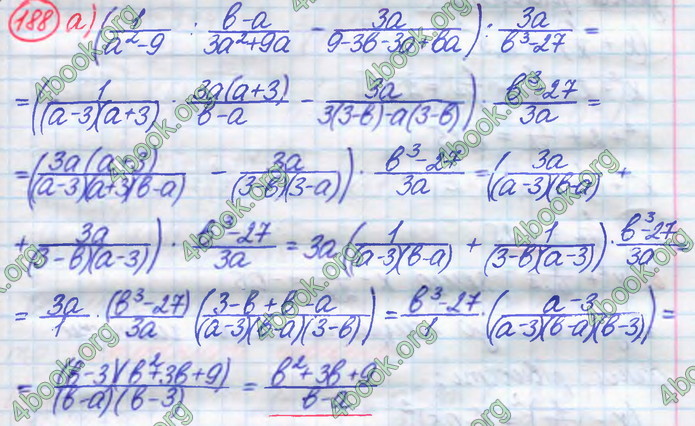 188 а) (1/(a²-9) : (в-a)/(3a²+9a) - 3a/(9-3в-3a+вa)) : 3a/(в³-27) =
= (1/((a-3)(a+3)) · 3a(a+3)/(в-a) - 3a/(3(3-в)-a(3-в))) · (в³-27)/3a =
= (3a(a+3)/((a-3)(a+3)(в-a)) - 3a/((3-в)(3-a))) · (в³-27)/3a = (3a/((a-3)(в-a)) +
+ 3a/((3-в)(a-3))) · (в³-27)/3a = 3a (1/((a-3)(в-a)) + 1/((3-в)(a-3))) · (в³-27)/3a
= 3a/1 · (в³-27)/3a ((3-в+в-a)/((a-3)(в-a)(3-в))) = (в³-27)/1 · ((a-3)/((a-3)(в-a)(в-3))) =
= (в-3)(в²+3в+9)/((в-a)(в-3)) = (в²+3в+9)/(в-a)
4book.org